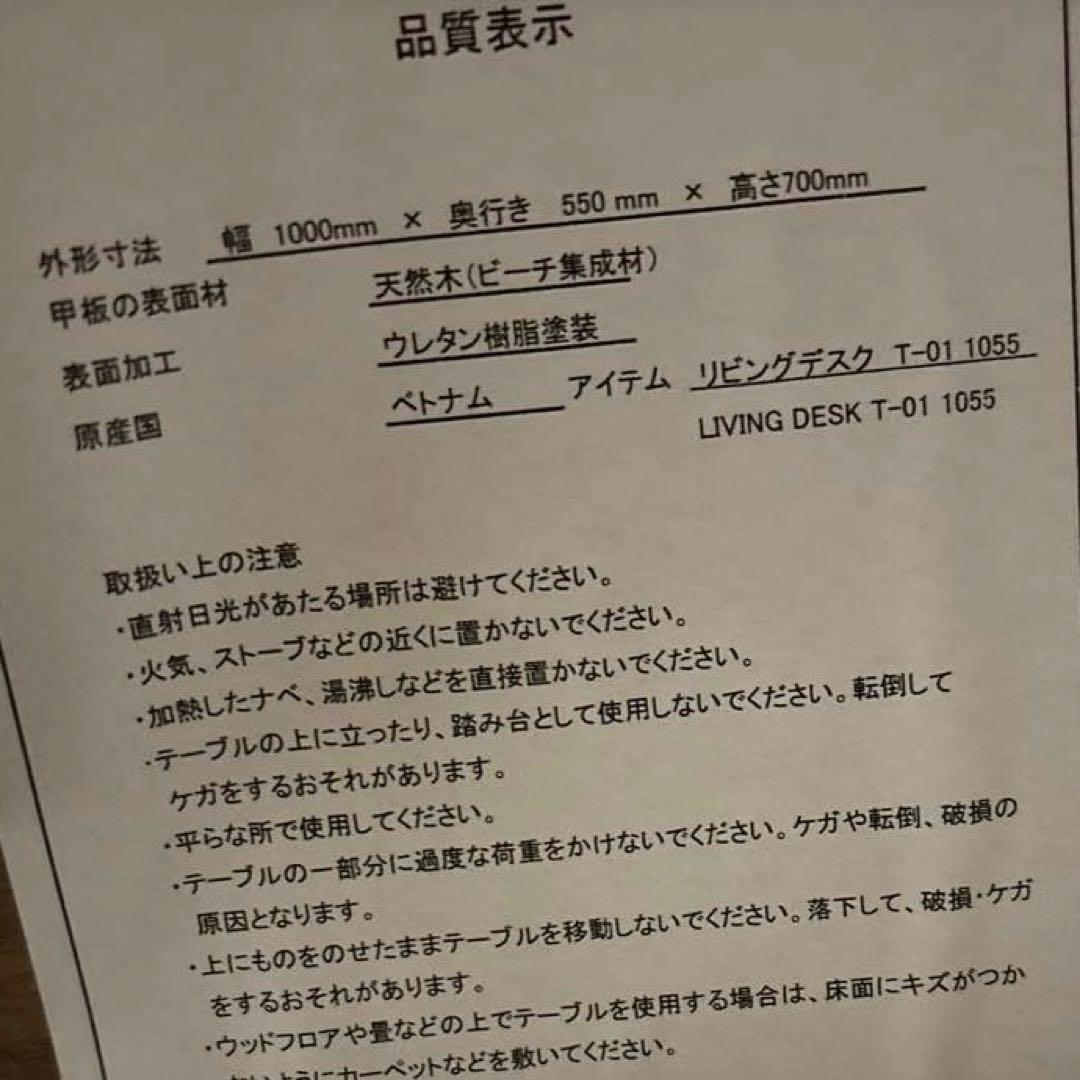 品質表示
外形寸法 幅 1000mm × 奥行き 550 mm × 高さ700mm
甲板の表面材 天然木(ビーチ集成材)
表面加工 ウレタン樹脂塗装
原産国 ベトナム アイテム リビングデスク T-01 1055
LIVING DESK T-01 1055
取扱い上の注意
・直射日光があたる場所は避けてください。
・火気、ストーブなどの近くに置かないでください。
・加熱したナベ、湯沸しなどを直接置かないでください。
・テーブルの上に立ったり、踏み台として使用しないでください。転倒して
ケガをするおそれがあります。
・平らな所で使用してください。
・テーブルの一部分に過度な荷重をかけないでください。ケガや転倒、破損の
原因となります。
・上にものをのせたままテーブルを移動しないでください。落下して、破損・ケガ
をするおそれがあります。
・ウッドフロアや畳などの上でテーブルを使用する場合は、床面にキズがつか
ないようにカーペットなどを敷いてください。